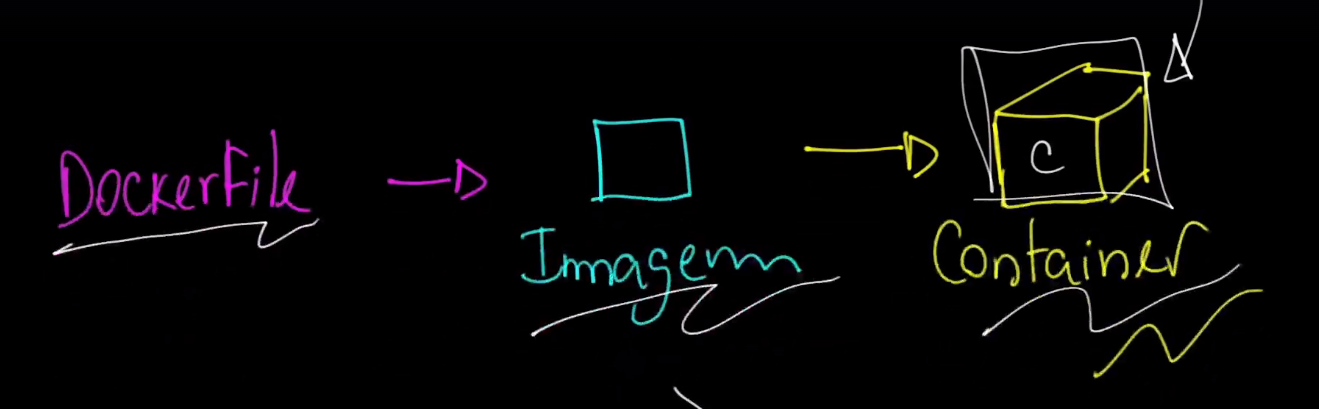 DockerFile
Imagem
C
Container